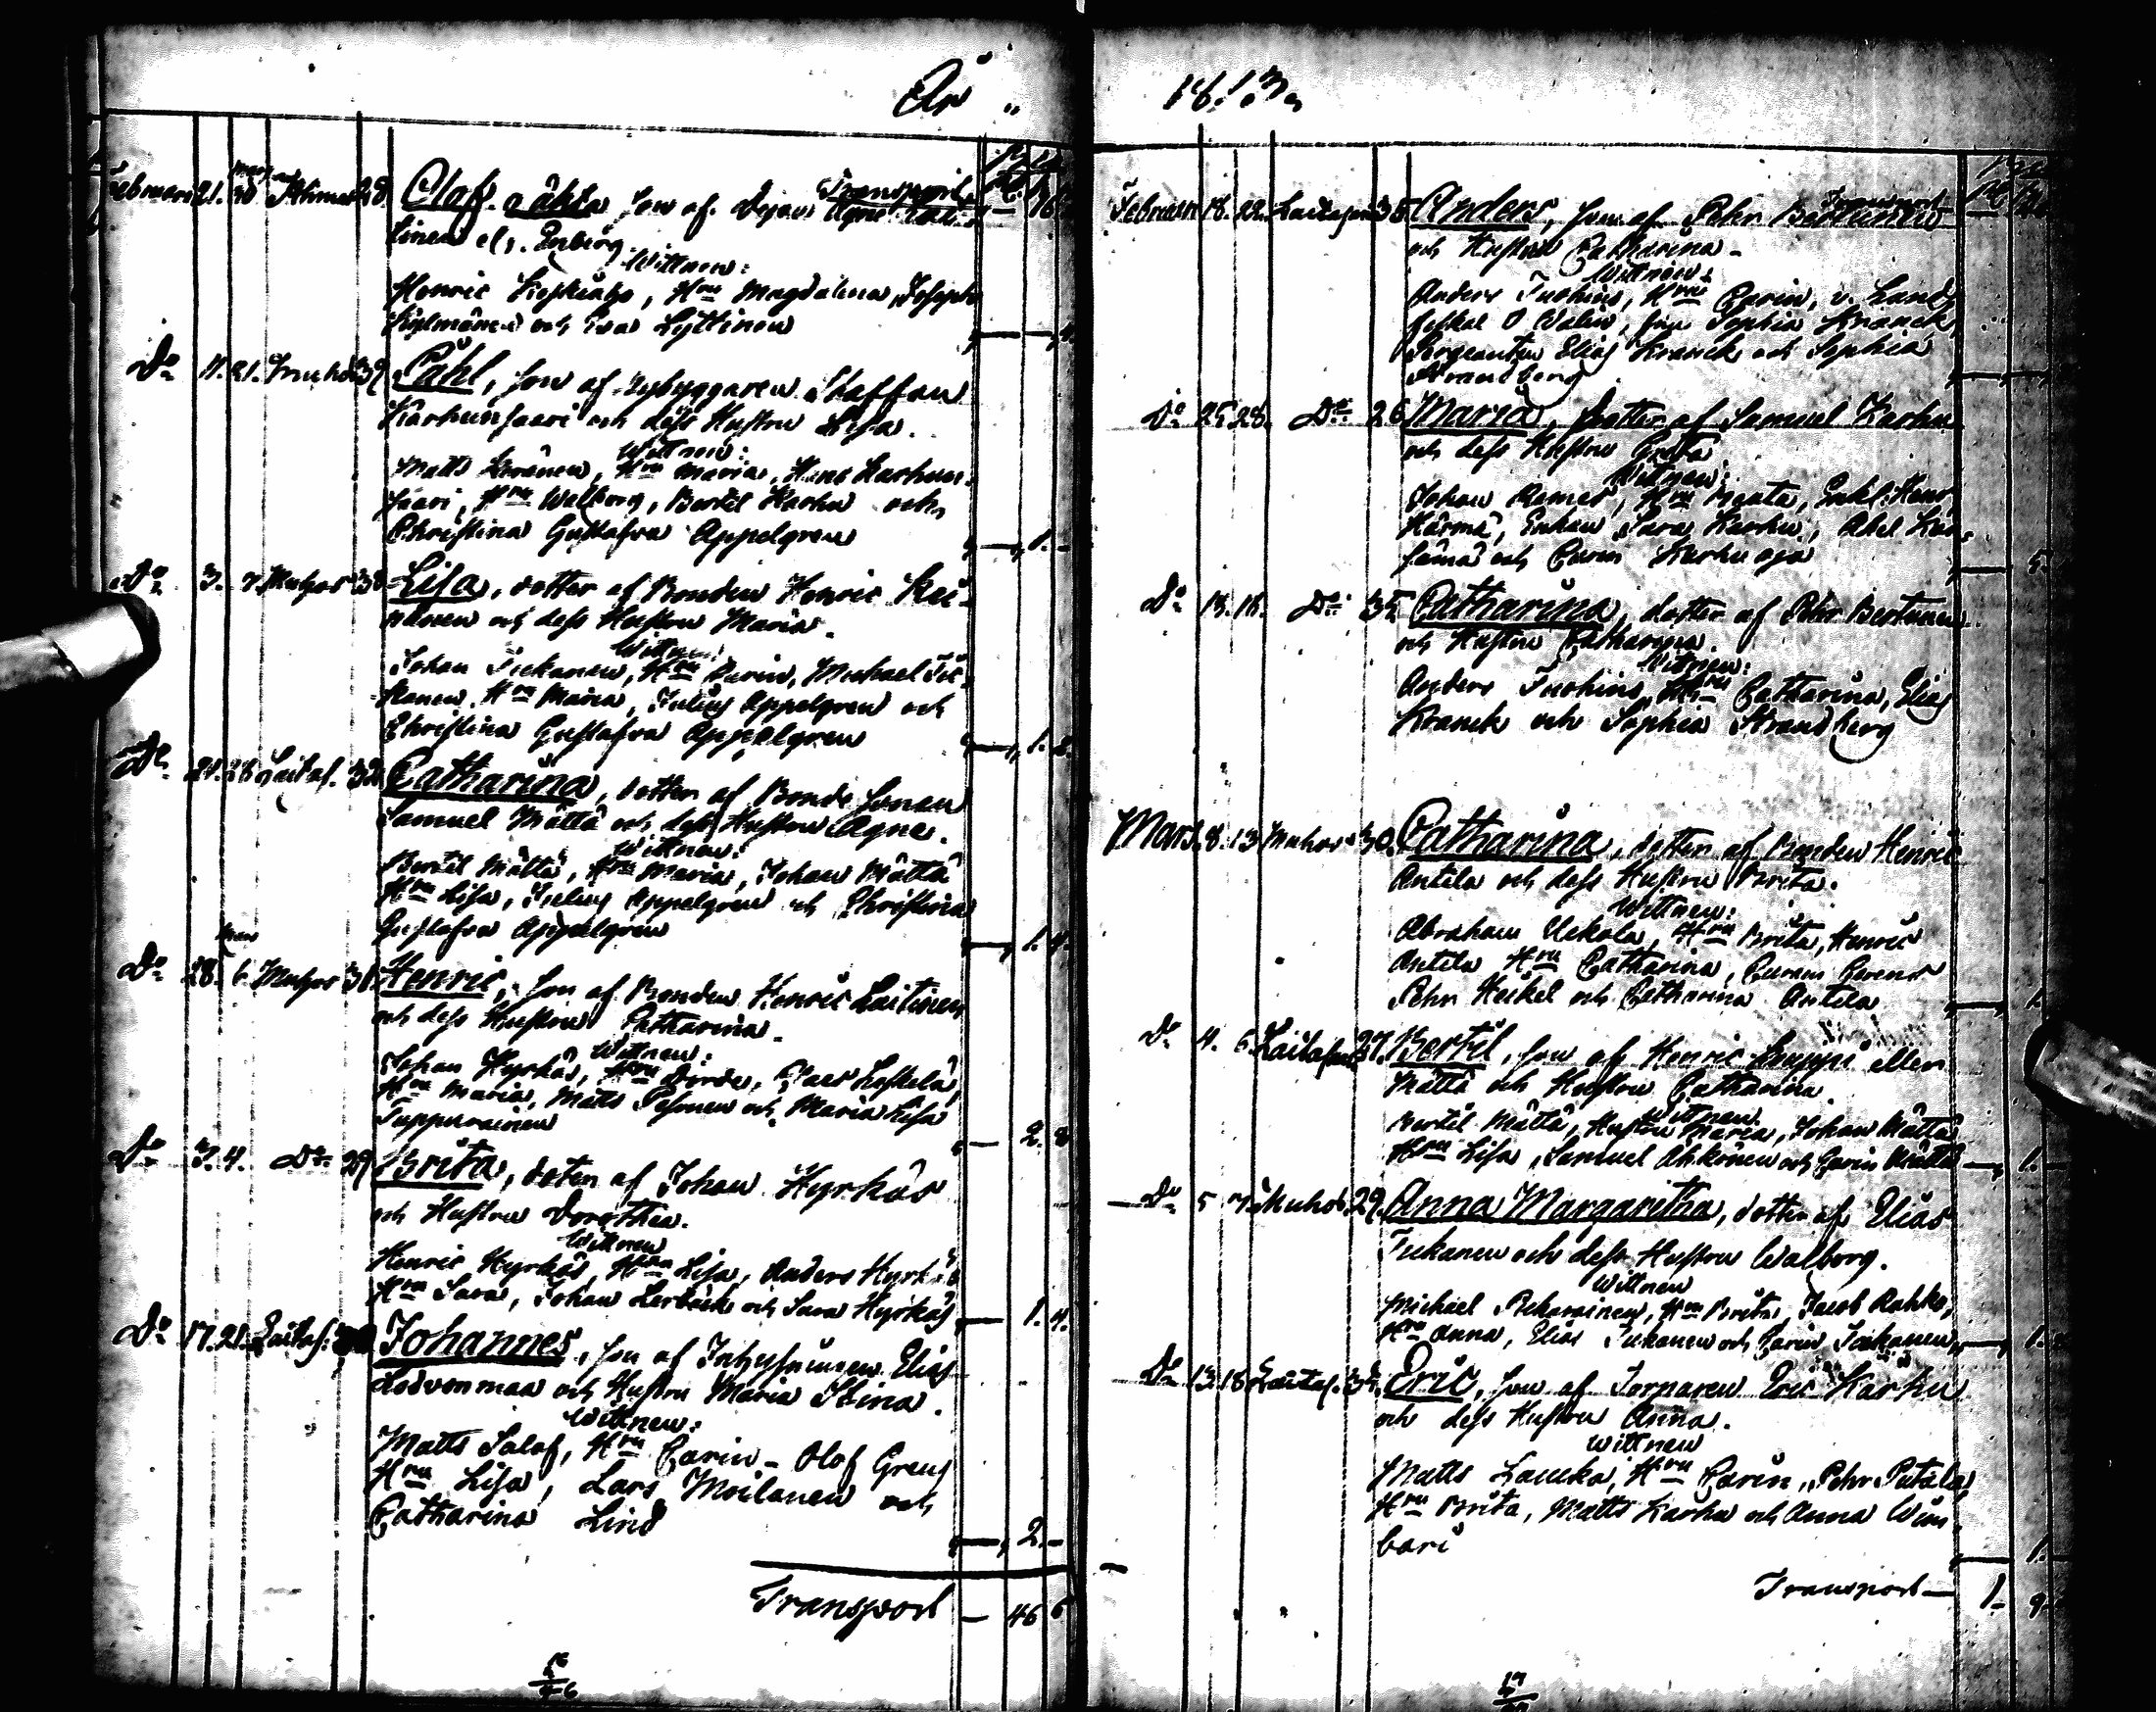 År 1813
Februari 21. 30 28 Olaf oäkta son af
Transport
Wittnen:
Henric, Hru Magdalena, Joseph
och Eva Lyttinen
Do 11. 21. 37 Påhl, son af nybyggaren Staffan
Karhunsaari och dess Hustru Lisa.
Wittnen:
Matts, Hru Maria, Hans Karhun-
saari, Hru Walborg, Bertil Karhu och
Christina Gustafva Appelgren 1.
Do 3. 7. Muhos 38 Lisa, dotter af Bonden Henric Kei-
nänen och dess Hustru Maria.
Wittnen:
Johan Tiekanen, Hru Carin, Michael Tie-
kanen, Hru Maria, Julius Appelgren och
Christina Gustafva Appelgren 1.
Do 21. 28 Laitas. 32 Catharina, dotter af Bonde sonen
Samuel Måttä och dess Hustru Agne.
Wittnen:
Bertil Måttä, Hru Maria, Johan Måttä
Hru Lisa, Julius Appelgren och Christina
Gustafva Appelgren 1. 4.
Mars
Do 28. 6. Muhos 31 Henric, son af Bonden Henric Laitinen
och dess Hustru Catharina.
Wittnen:
Johan Hyrkäs, Hru Dorde, Claes Laskela
Hru Maria, Matts Pesonen och Maria Lisa
Tuppurainen 2. 8
Do 3. 4. Do 29 Brita, doter af Johan Hyrkäs
och Hustru Dorothea.
Wittnen
Henric Hyrkäs, Hru Lisa, Anders Hyrkäs
Hru Sara, Johan Lerbäck och Sara Hyrkäs 1. 4.
Do 17. 21. Laitas: Johannes, son af Inhysningen Elias
Lodvonmaa och Hustru Maria Stina.
Wittnen:
Matts Salof, Hru Carin - Olof Greus
Hru Lisa, Lars Moilanen och
Catharina Lind
2. -
Transport - 46 6
Februari 18. 22. Laitasari 35 Anders, son af Pehr Bertunen
Transport
och Hustru Catharina -
Wittnen:
Anders Tuohino, Hru Carin, v. Lands
fiskal O Walin, Sophia Kranck
Sergeanten Elias Kranck och Sophia
Strandberg
Do 25 28. Do 26 Maria, dotter af Samuel Karhu
och dess Hustru Greta
Wittnen:
Johan Ramet, Hru Beata, Enkl: Henr.
Härmä, Enkan Sara Karhu, Abel
och Carin Karhu oja 5
Do 15. 18. Do 35 Catharina, dotter af Pehr Bertunen
och Hustru Catharina.
Wittnen:
Anders Tuohino, Hru Catharina, Elias
Kranck och Sophia Strandberg
Mars. 8. 13 Muhos 30. Catharina, dotter af Bonden Henric
Antila och dess Hustru Brita.
Wittnen:
Abraham Uckola, Hru Brita, Henric
Antila Hru Catharina,
Pehr Heikel och Catharina Antila 1.
Do 4. 6. Laitasari 27. Bertil, son af Henric Knuppi eller
Måttä och Hustru Catharina.
Wittnen
Bertil Måttä, Hustru Maria, Johan Måttä
Hru Lisa, Samuel Ahkonen och Carin Måttä 1.
Do 5 7. Muhos. 29. Anna Margaritha, dotter af Elias
Tiekanen och dess Hustru Walborg.
Wittnen
Michael Pekarainen, Hru Brita, Jacob Rahko,
Hru Anna, Elias Tiekanen och Carin Tiekanen 1.
Do 13. 18 Laitas. 35. Eric, son af Torparen Eric Karhu
och dess Hustru Anna.
Wittnen
Matts Laucka, Hru Carin, Pehr Putala,
Hru Brita, Matts Karhu och Anna
1.
Transport - 1. 9